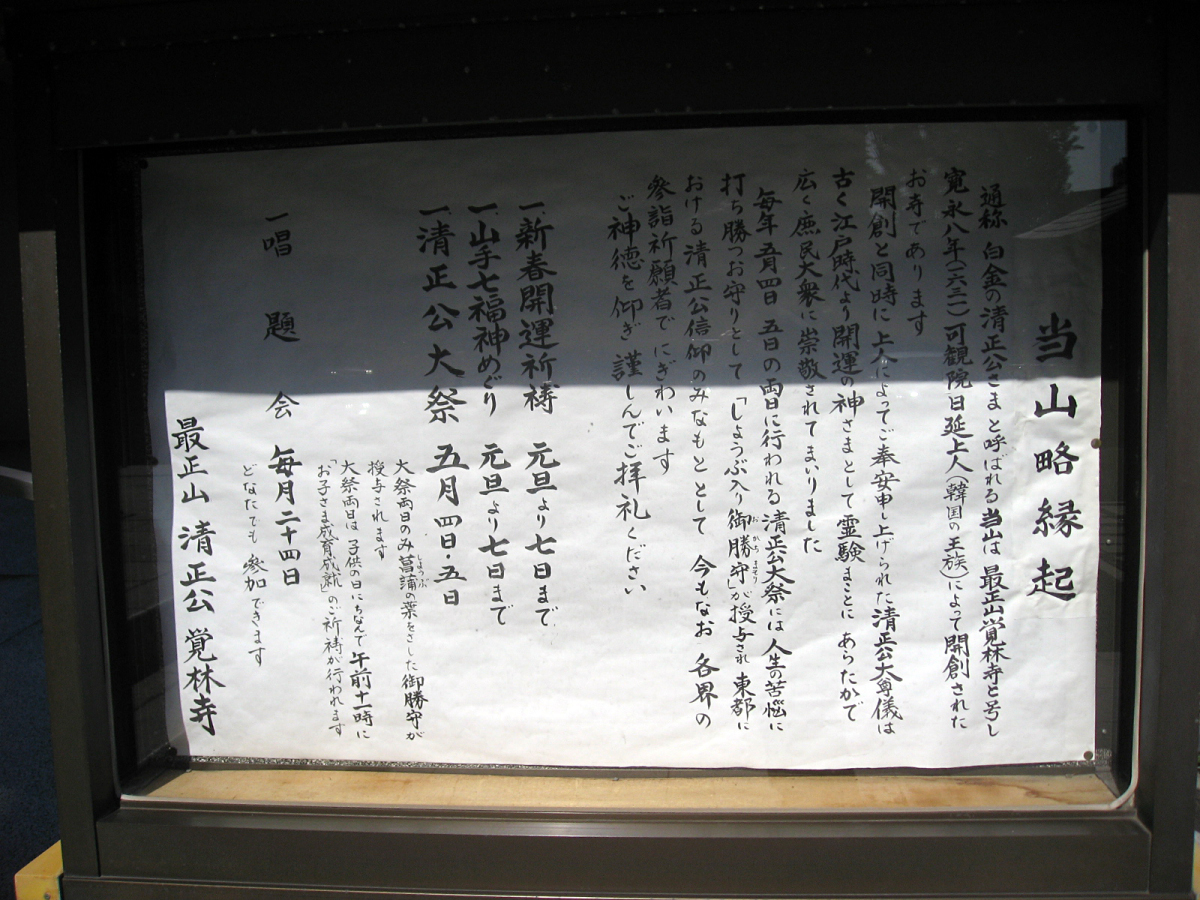 当山略縁起
通称 白金の清正公さまと呼ばれる当山は 最正山覚林寺と号し
寛永八年(一六三一)可観院日延上人(韓国の王族)によって開創された
お寺であります
開創と同時に上人によってご奉安申し上げられた清正公大尊儀は
古く江戸時代より開運の神さまとして霊験まことに あらたかで
広く庶民大衆に崇敬されてまいりました
毎年 五月四日 五日の両日に行われる清正公大祭には 人生の苦悩に
打ち勝つお守りとして「しょうぶ入り御勝守」が授与され 東都に
おける清正公信仰のみなもととして 今もなお 各界の
参詣祈願者で にぎわいます
ご神徳を仰ぎ 謹しんでご拝礼ください
一新春開運祈祷 元旦より七日まで
一山手七福神めぐり 元旦より七日まで
一清正公大祭 五月四日・五日
大祭両日のみ菖蒲の葉をさした御勝守が
授与されます
大祭両日は 子供の日にちなんで午前十一時に
「お子さま成育成就」のご祈祷が行われます
一唱題会 毎月二十四日
どなたでも 参加できます
最正山 清正公 覚林寺